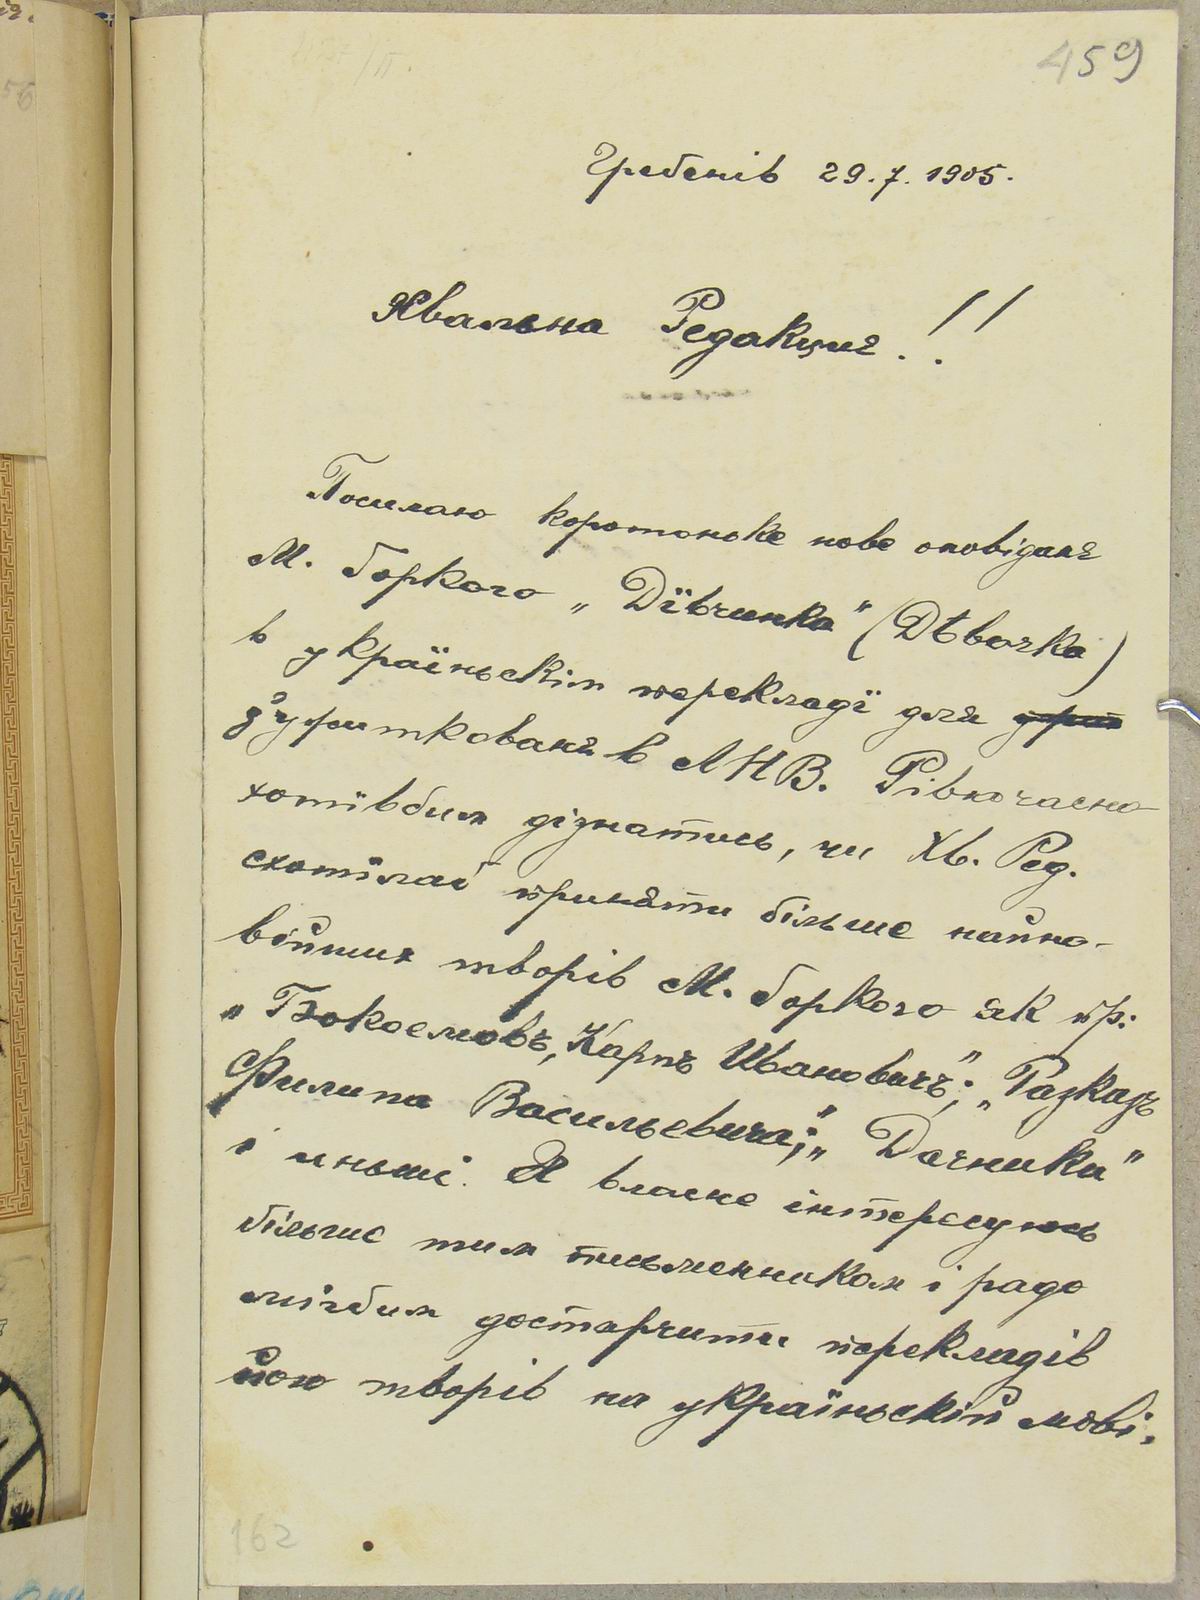 459
Гребенів 29.7.1905.
Хвальна Редакциє!!
Посилаю коротоньке нове оповіданє
М. Горкого „Дївчинка" (Дѣвочка)
в україньскім перекладї для
зужиткованя в ЛНВ. Рівночасно
хотївбим дізнатись, чи Хв. Ред.
схотїлаб приняти більше найно-
війших творів М. Горкого як пр.:
Карпъ Ивановичъ"; „Разказъ
Филипа Васильевича"; „Дачники"
і иньші. Я власне інтересуюсь
більше тим письменником і радо
мігбим достарчити перекладів
його творів на україньскій мові.
162